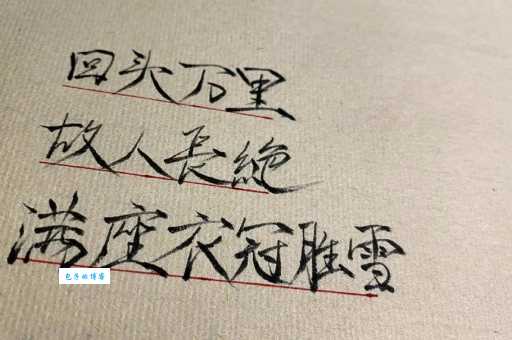 回头万里
故人長絶
满座衣冠胜雪
包子的博客